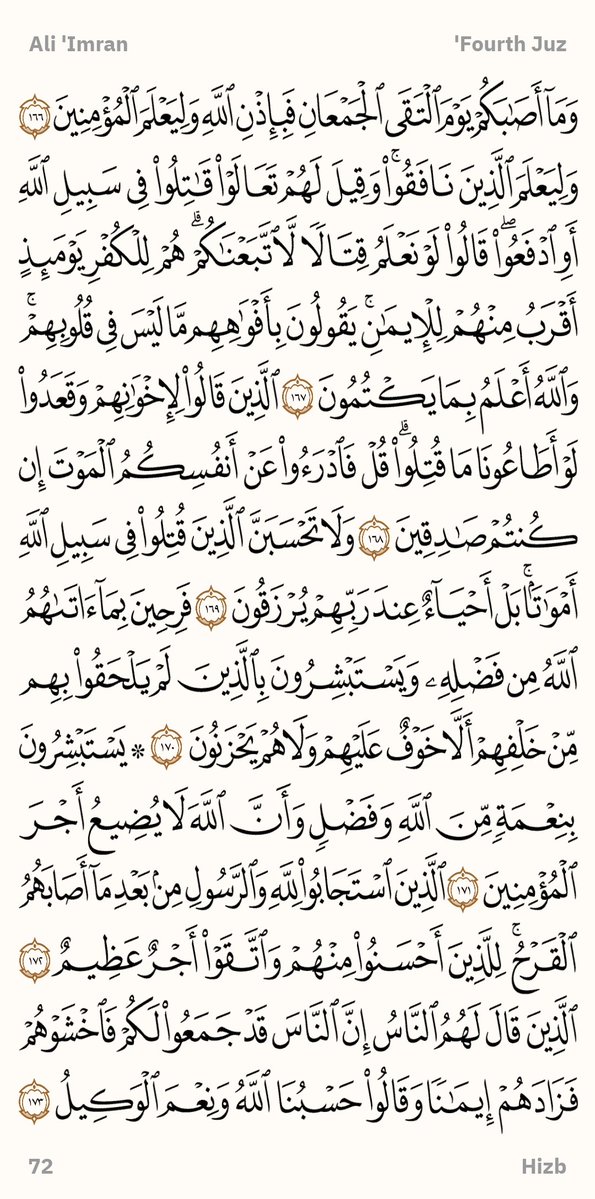 Ali 'Imran
'Fourth Juz
وَمَآ أَصَٰبَكُمْ يَوْمَ ٱلْتَقَى ٱلْجَمْعَانِ فَبِإِذْنِ ٱللَّهِ وَلِيَعْلَمَ ٱلْمُؤْمِنِينَ ١٦٦
وَلِيَعْلَمَ ٱلَّذِينَ نَافَقُوا۟ۚ وَقِيلَ لَهُمْ تَعَالَوْا۟ قَٰتِلُوا۟ فِى سَبِيلِ ٱللَّهِ
أَوِ ٱدْفَعُوا۟ۖ قَالُوا۟ لَوْ نَعْلَمُ قِتَالًا لَّٱتَّبَعْنَٰكُمْۗ هُمْ لِلْكُفْرِ يَوْمَئِذٍ
أَقْرَبُ مِنْهُمْ لِلْإِيمَٰنِۚ يَقُولُونَ بِأَفْوَٰهِهِم مَّا لَيْسَ فِى قُلُوبِهِمْۚ
وَٱللَّهُ أَعْلَمُ بِمَا يَكْتُمُونَ ١٦٧ ٱلَّذِينَ قَالُوا۟ لِإِخْوَٰنِهِمْ وَقَعَدُوا۟
لَوْ أَطَاعُونَا مَا قُتِلُوا۟ۗ قُلْ فَٱدْرَءُوا۟ عَنْ أَنفُسِكُمُ ٱلْمَوْتَ إِن
كُنتُمْ صَٰدِقِينَ ١٦٨ وَلَا تَحْسَبَنَّ ٱلَّذِينَ قُتِلُوا۟ فِى سَبِيلِ ٱللَّهِ
أَمْوَٰتًۢاۚ بَلْ أَحْيَآءٌ عِندَ رَبِّهِمْ يُرْزَقُونَ ١٦٩ فَرِحِينَ بِمَآ ءَاتَىٰهُمُ
ٱللَّهُ مِن فَضْلِهِۦ وَيَسْتَبْشِرُونَ بِٱلَّذِينَ لَمْ يَلْحَقُوا۟ بِهِم
مِّنْ خَلْفِهِمْ أَلَّا خَوْفٌ عَلَيْهِمْ وَلَا هُمْ يَحْزَنُونَ ١٧٠ ۞ يَسْتَبْشِرُونَ
بِنِعْمَةٍ مِّنَ ٱللَّهِ وَفَضْلٍ وَأَنَّ ٱللَّهَ لَا يُضِيعُ أَجْرَ
ٱلْمُؤْمِنِينَ ١٧١ ٱلَّذِينَ ٱسْتَجَابُوا۟ لِلَّهِ وَٱلرَّسُولِ مِنۢ بَعْدِ مَآ أَصَابَهُمُ
ٱلْقَرْحُۚ لِلَّذِينَ أَحْسَنُوا۟ مِنْهُمْ وَٱتَّقَوْا۟ أَجْرٌ عَظِيمٌ ١٧٢
ٱلَّذِينَ قَالَ لَهُمُ ٱلنَّاسُ إِنَّ ٱلنَّاسَ قَدْ جَمَعُوا۟ لَكُمْ فَٱخْشَوْهُمْ
فَزَادَهُمْ إِيمَٰنًا وَقَالُوا۟ حَسْبُنَا ٱللَّهُ وَنِعْمَ ٱلْوَكِيلُ ١٧٣
72
Hizb